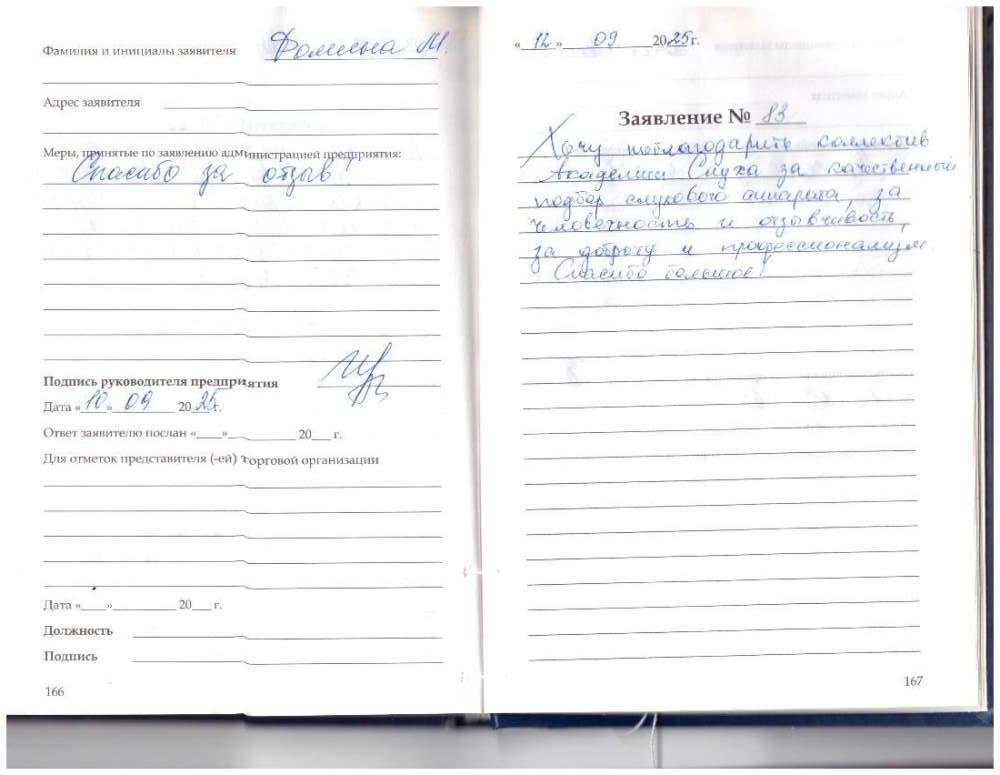 Фамилия и инициалы заявителя Фомина М.
Адрес заявителя
Меры, принятые по заявлению администрацией предприятия:
Спасибо за отзыв!
Подпись руководителя предприятия
Дата «10» 09 2025г.
Ответ заявителю послан «___»__________ 20___ г.
Для отметок представителя (-ей) торговой организации
Дата «____»__________ 20___ г.
Должность
Подпись
166
«12» 09 2025г.
Заявление № 83
Хочу поблагодарить коллектив
Академии Слуха за качественный
подбор слухового аппарата, за
человечность и отзывчивость,
за доброту и профессионализм.
Спасибо большое!
167